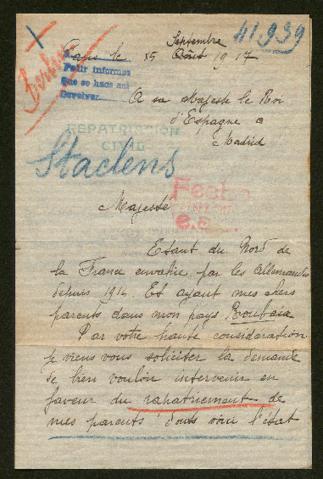 41.939
Berlin
Paris le 15 Septembre 1917
Août
Pedir informes
Que se haga así
Devolver
A sa Majesté le Roi
d'Espagne a
Madrid
REPATRIACION
CIVIL
Staelens
Fecha
Majesté
Etant du Nord de
la France envahie par les Allemands
depuis 1914. Et ayant mes chers
parents dans mon pays Roubaix
Par votre haute considération
je viens vous soliciter la demande
de bien vouloir intervenir en
faveur du rapatriement de
mes parents : dont voici l'état